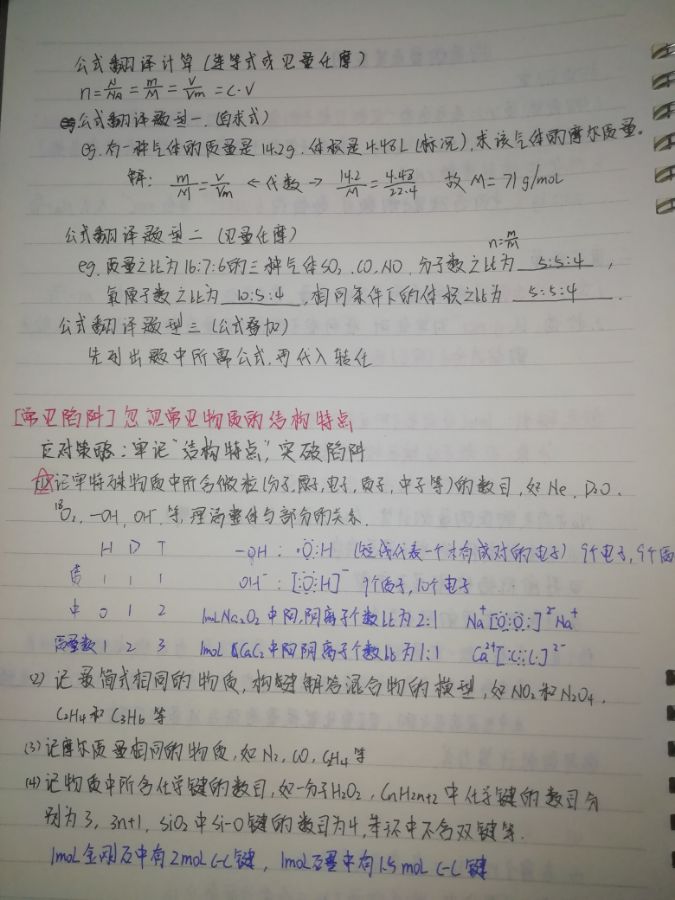 公式翻译计算(连等式或见量化摩)
n=N/NA=m/M=V/Vm=C·V
公式翻译题型一.(直求式)
eg.有一种气体的质量是14.2g.体积是4.48L(标况),求该气体的摩尔质量.
解: m/M=V/Vm ←代数→ 14.2/M=4.48/22.4 故M=71g/mol
公式翻译题型二(见量化摩)
n=m/M
eg.质量之比为16:7:6的三种气体SO₂.CO.NO.分子数之比为 5:5:4 ,
氧原子数之比为 10:5:4 ,相同条件下的体积之比为 5:5:4 .
公式翻译题型三(公式叠加)
先列出题中所需公式,再代入转化
[常见陷阱]忽视常见物质的结构特点
应对策略:牢记"结构特点",突破陷阱
(1)记牢特殊物质中所含微粒(分子,原子,电子,质子,中子等)的数目,如Ne、D₂O、
¹⁸O₂、-OH、OH⁻等,理清整体与部分的关系.
H D T -OH: ·Ö:H (短线代表一个未有成对的电子) 9个电子,9个质
质 1 1 1 OH⁻: [:Ö:H]⁻ 9个质子,10个电子
中 0 1 2 1molNa₂O₂中阳,阴离子个数比为2:1 Na⁺[:Ö:Ö:]²⁻Na⁺
质量数 1 2 3 1mol CaC₂中阳阴离子个数比为1:1 Ca²⁺[:C⋮⋮C:]²⁻
(2)记最简式相同的物质,构建解答混合物的模型,如NO₂和N₂O₄,
C₂H₄和C₃H₆等
(3)记摩尔质量相同的物质,如N₂,CO,C₂H₄等
(4)记物质中所含化学键的数目,如一分子H₂O₂、CnH2n+2中化学键的数目分
别为3,3n+1,SiO₂中Si-O键的数目为4,苯环中不含双键等.
1mol金刚石中有2mol C-C键,1mol石墨中有1.5mol C-C键